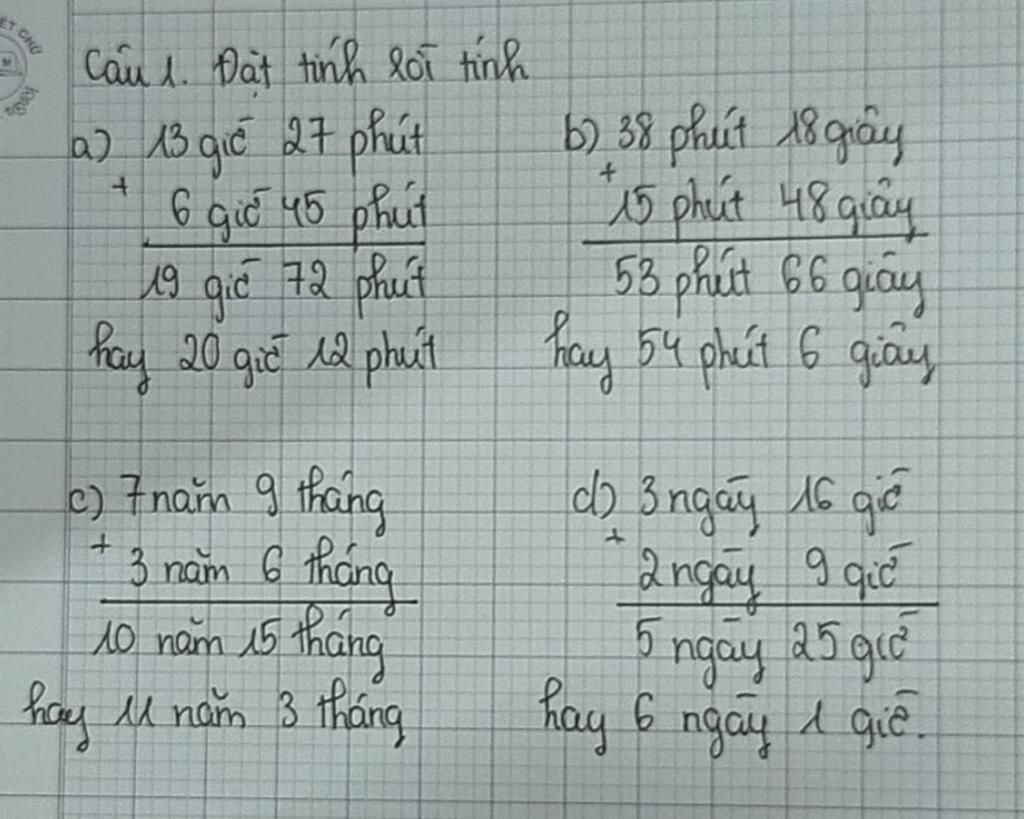 Câu 1. Đặt tính rồi tính
a) 13 giờ 27 phút
+
6 giờ 45 phút
19 giờ 72 phút
hay 20 giờ 12 phút
b) 38 phút 18 giây
+
15 phút 48 giây
53 phút 66 giây
hay 54 phút 6 giây
c) 7 năm 9 tháng
+
3 năm 6 tháng
10 năm 15 tháng
hay 11 năm 3 tháng
d) 3 ngày 16 giờ
+
2 ngày 9 giờ
5 ngày 25 giờ
hay 6 ngày 1 giờ.